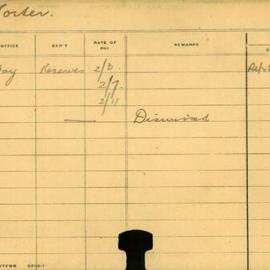 Porter.
OFFICE DEP'T RATE OF PAY REMARKS
Reserves 2/3.
2/7.
2/11
— Dismissed